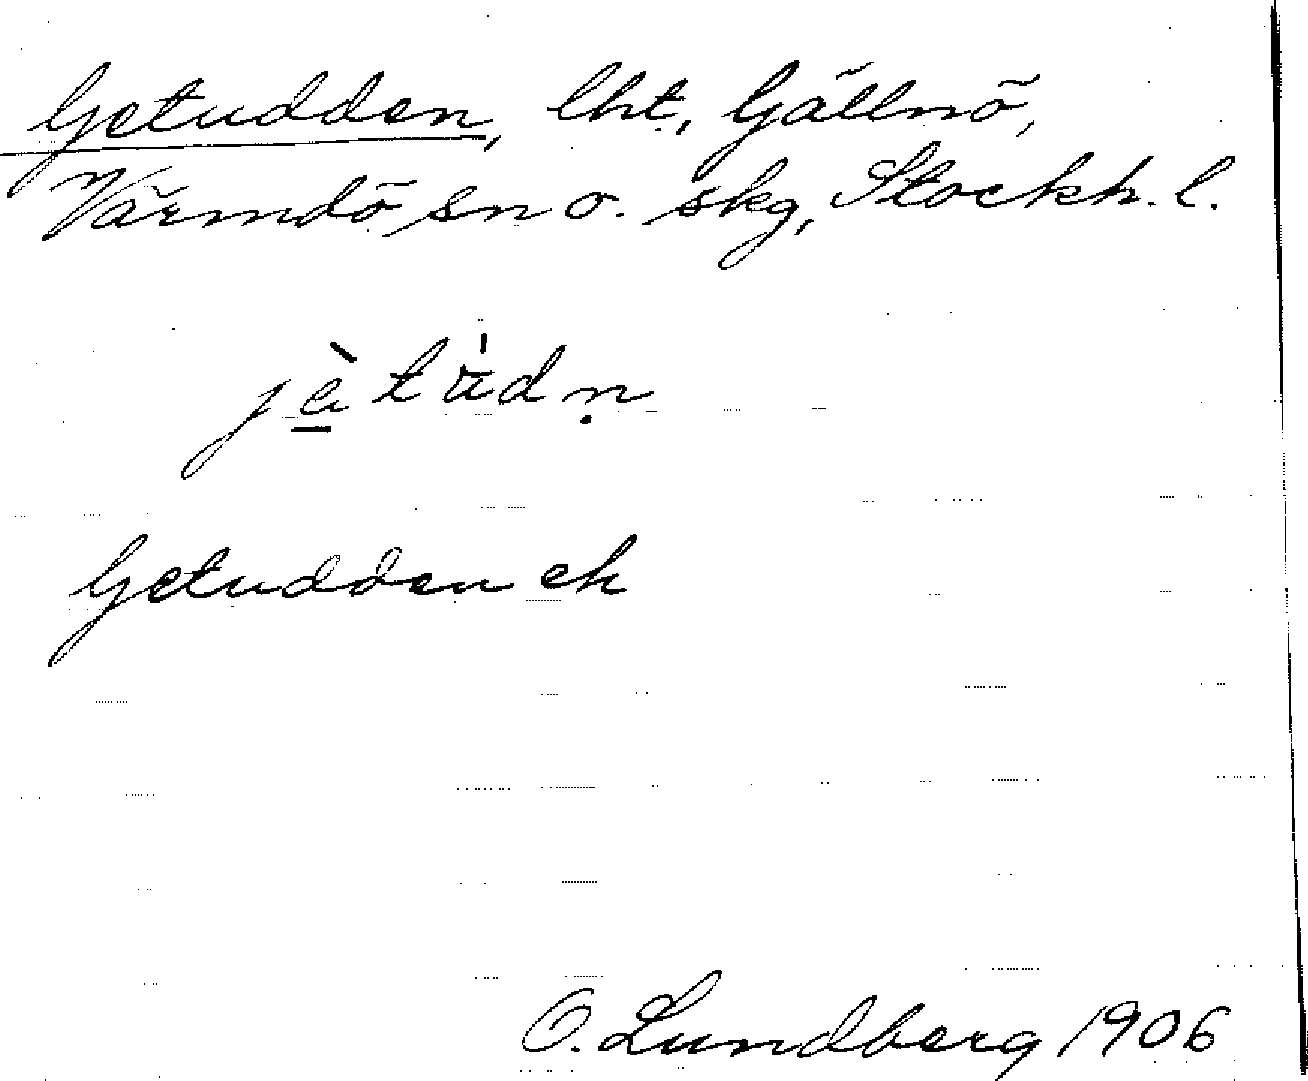 Getudden, lht, Gällnö,
Värmdö sn o. skg, Stockh. l.
jètu̇dṇ
Getudden ek
O. Lundberg 1906